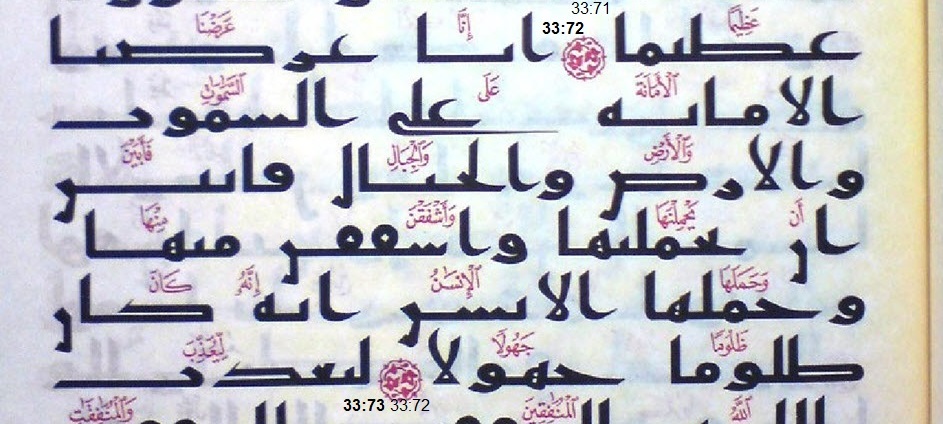 33:71
33:72
عَظِيمًا إِنَّا عَرَضْنَا
عظيما انا عرضنا
ٱلْأَمَانَةَ عَلَى ٱلسَّمَٰوَٰتِ
الامانه على السموت
وَٱلْأَرْضِ وَٱلْجِبَالِ فَأَبَيْنَ
والارض والجبال فابين
أَن يَحْمِلْنَهَا وَأَشْفَقْنَ مِنْهَا
ان يحملنها واشفقن منها
وَحَمَلَهَا ٱلْإِنسَٰنُ إِنَّهُۥ كَانَ
وحملها الانسن انه كان
ظَلُومًا جَهُولًا لِّيُعَذِّبَ
ظلوما جهولا ليعذب
33:73 33:72
ٱللَّهُ ٱلْمُنَٰفِقِينَ وَٱلْمُنَٰفِقَٰتِ